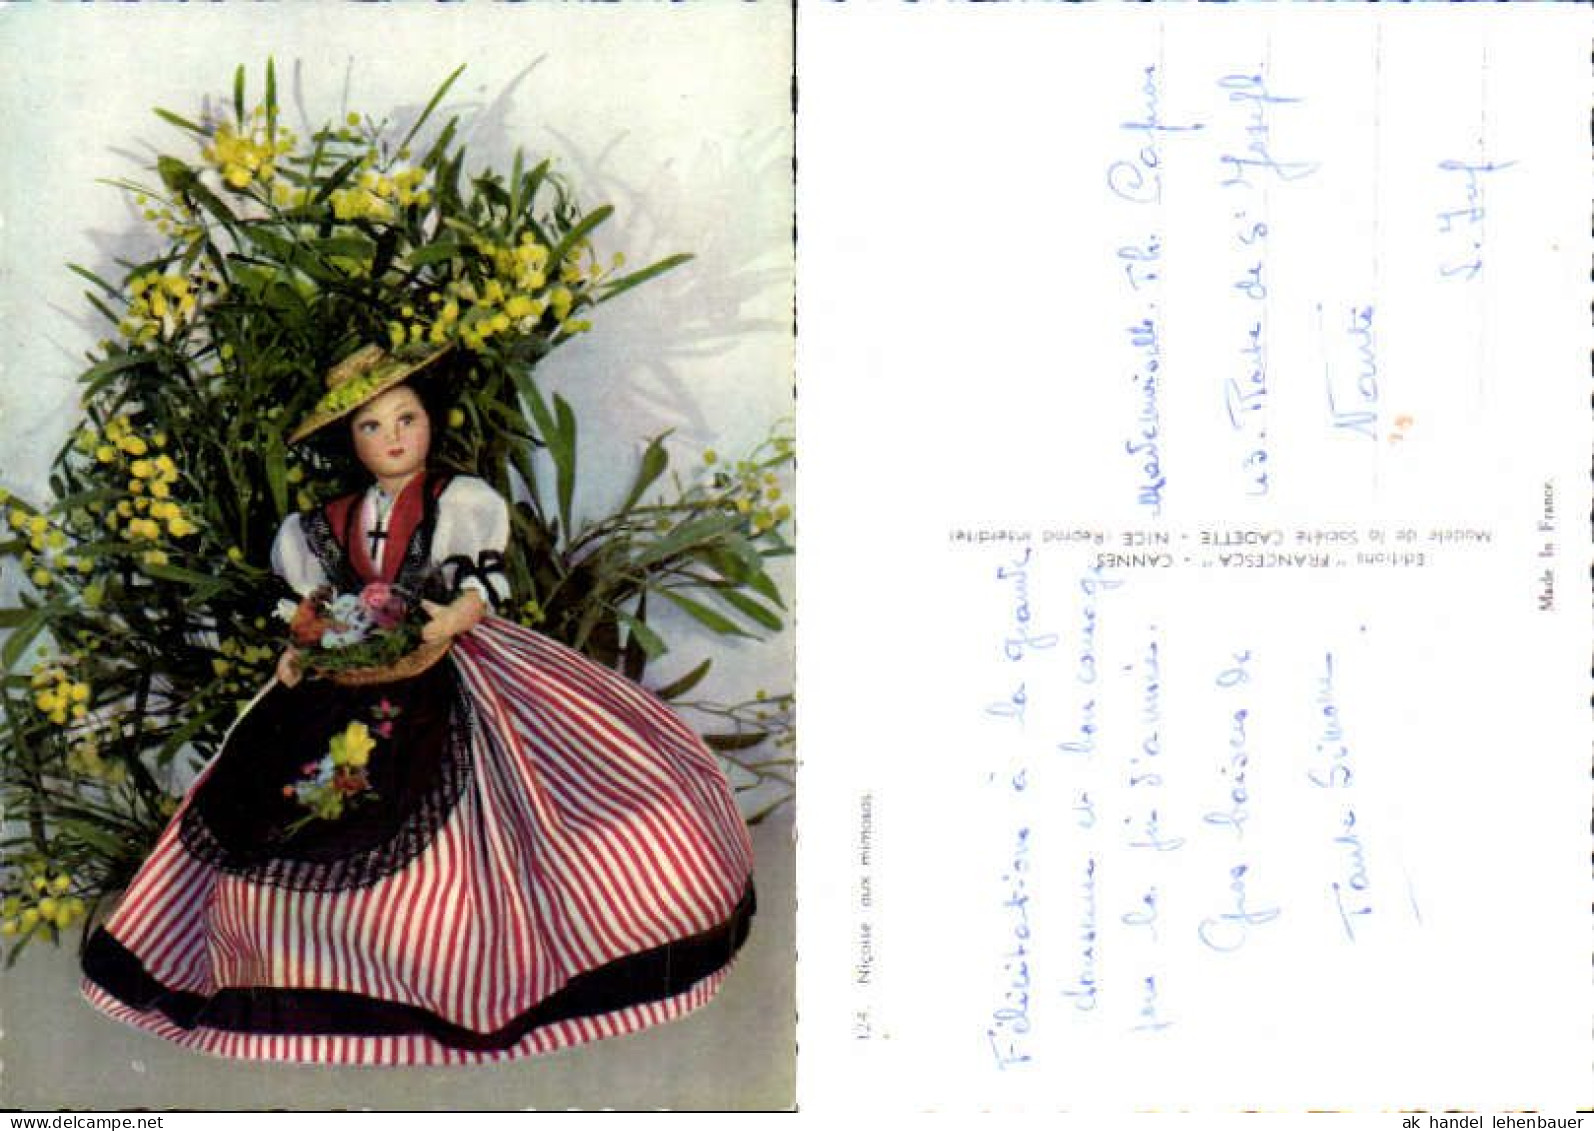 124. Niçoise aux mimosas.
Félicitations à la grande
chanceuse et bon courage
pour la fin d'année.
Gros baisers de
Tante Simone
Editions "FRANCESCA" - CANNES
Modèle de la Société CADETTE - NICE (Reprod interdite)
Mademoiselle. Th.
Route de St Joseph.
Nantes
Made In France.
ak handel lehenbauer